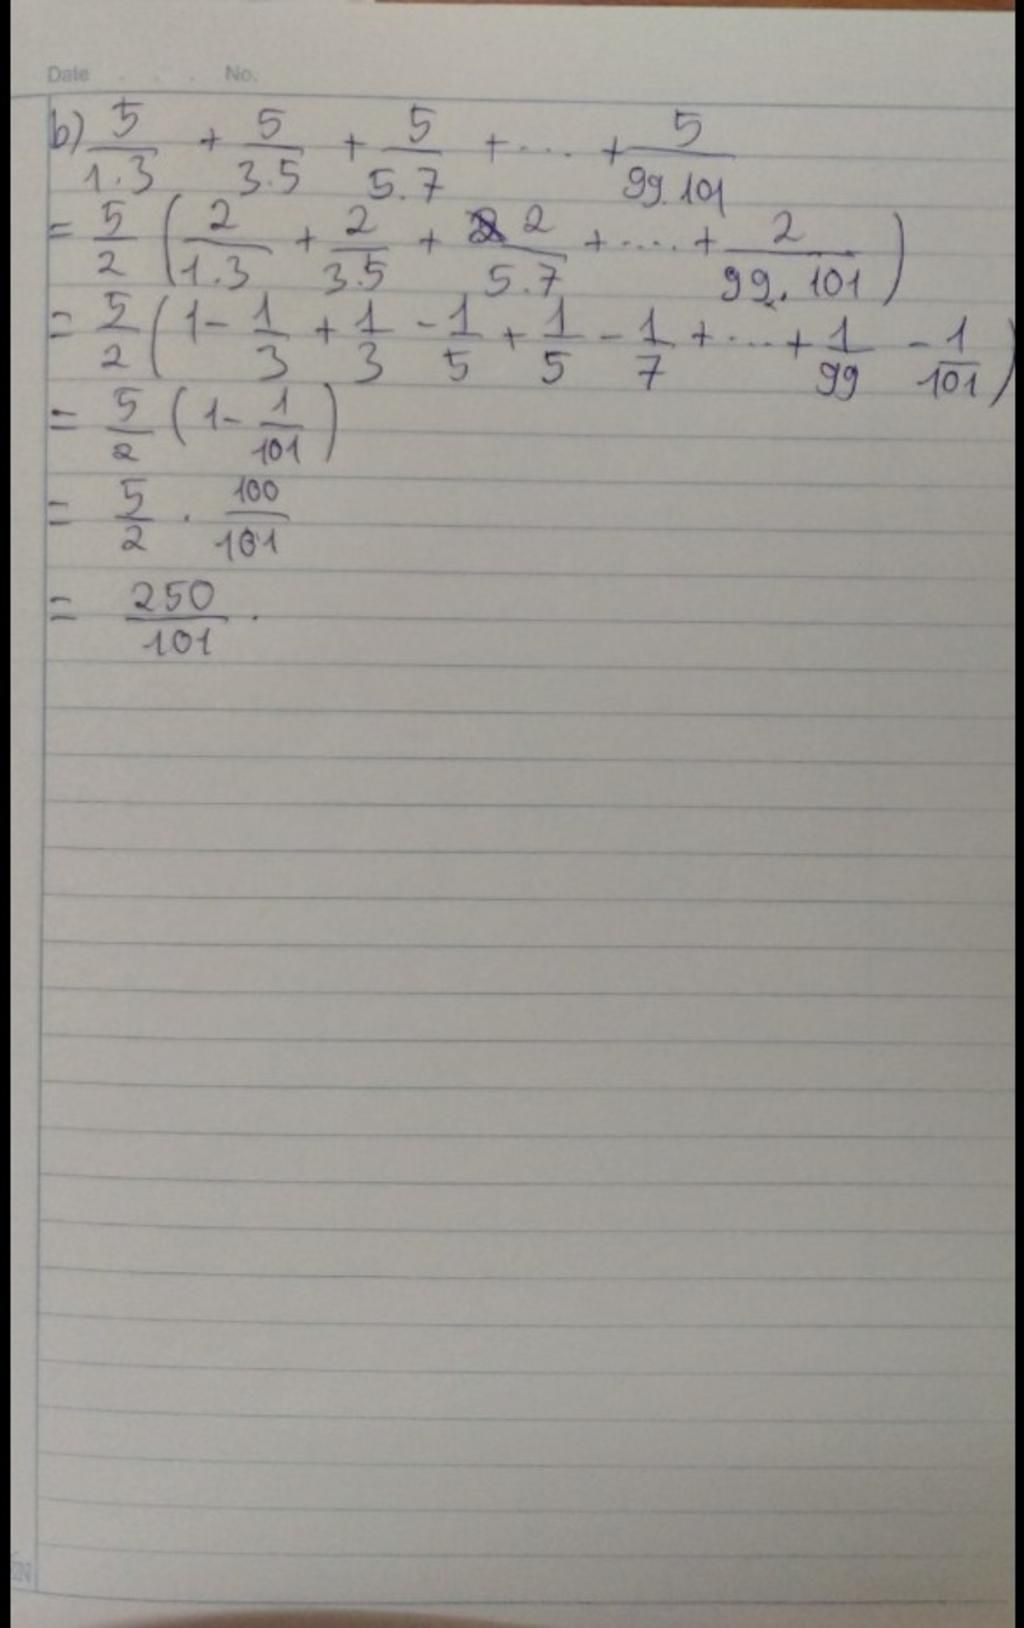 Date . . . No.
b) 5/1.3 + 5/3.5 + 5/5.7 + .... + 5/99.101
= 5/2 (2/1.3 + 2/3.5 + 2/5.7 + ..... + 2/99.101)
= 5/2 (1 - 1/3 + 1/3 - 1/5 + 1/5 - 1/7 + .... + 1/99 - 1/101)
= 5/2 (1 - 1/101)
= 5/2 . 100/101
= 250/101 .